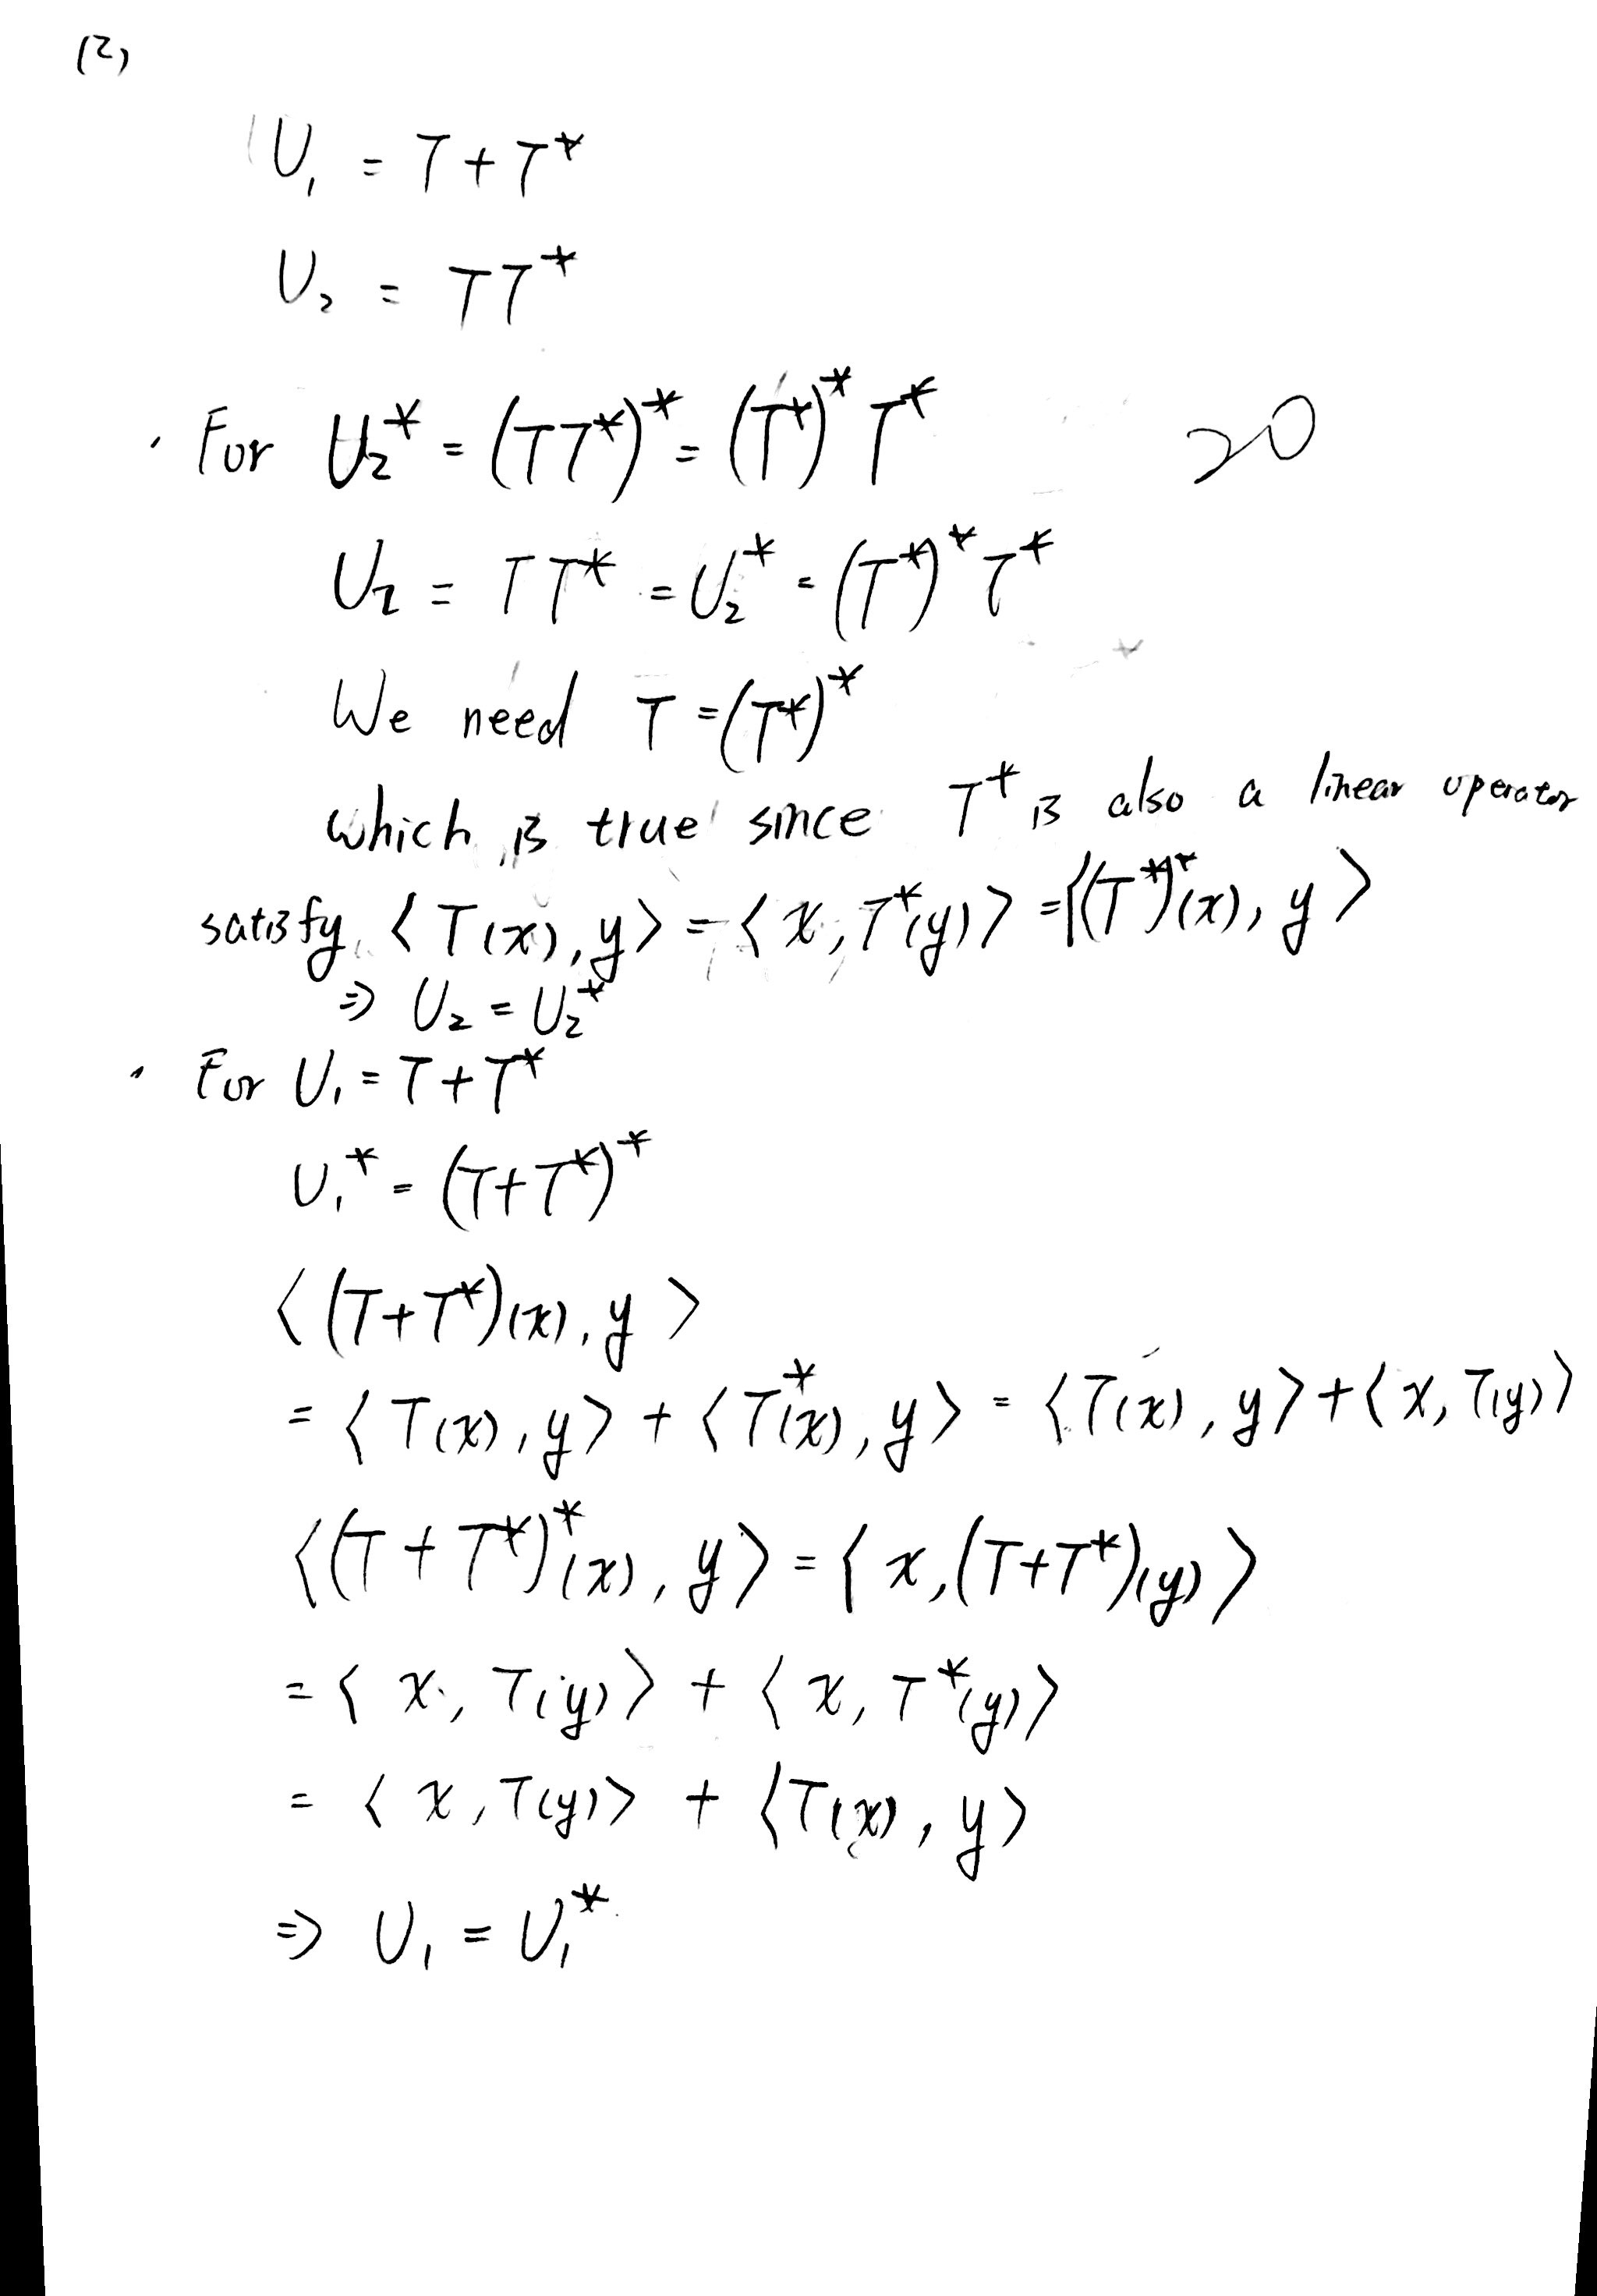 (2)
U₁ = T + T*
U₂ = TT*
· For U₂* = (TT*)* = (T*)* T*
20
U₂ = TT* = U₂* = (T*)* T*
We need T = (T*)*
which is true since T* is also a linear operator
satisfy ⟨T(x), y⟩ = ⟨x, T*(y)⟩ = ⟨(T*)*(x), y⟩
⇒ U₂ = U₂*
· For U₁ = T + T*
U₁* = (T + T*)*
⟨(T + T*)(x), y⟩
= ⟨T(x), y⟩ + ⟨T*(x), y⟩ = ⟨T(x), y⟩ + ⟨x, T(y)⟩
⟨(T + T*)*(x), y⟩ = ⟨x, (T + T*)(y)⟩
= ⟨x, T(y)⟩ + ⟨x, T*(y)⟩
= ⟨x, T(y)⟩ + ⟨T(x), y⟩
⇒ U₁ = U₁*